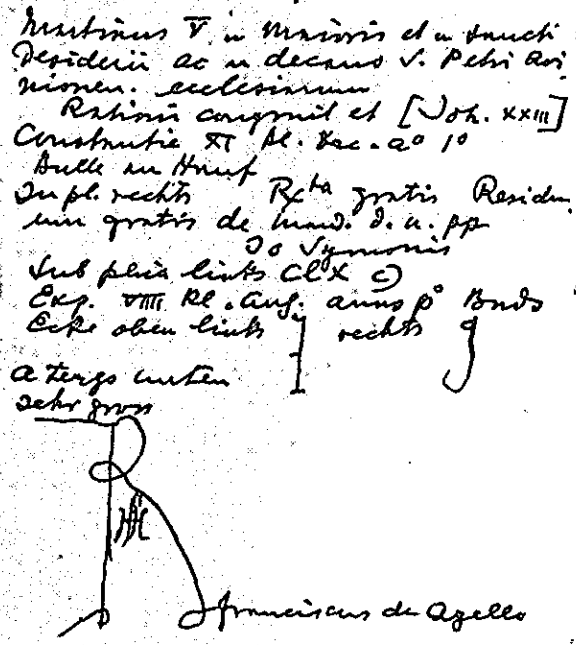 Martinus V. in Maioris et in Sancti
Desiderii ac in decano S. Petri Avi
nionen. ecclesiarum
Rationi congruit et [Joh. XXIII]
Constantie XI Kl. Dec. a° 1°
Bulle an Hanf
In pl. rechts Rta gratis Residu
um gratis de mand. d. n. pp
Jo Symonis
Sub plica links CLX
Exp. VIII Kl. Aug. anno p° Bnds
Ecke oben links rechts
a tergo unten
sehr gross
R
franciscus de Agello